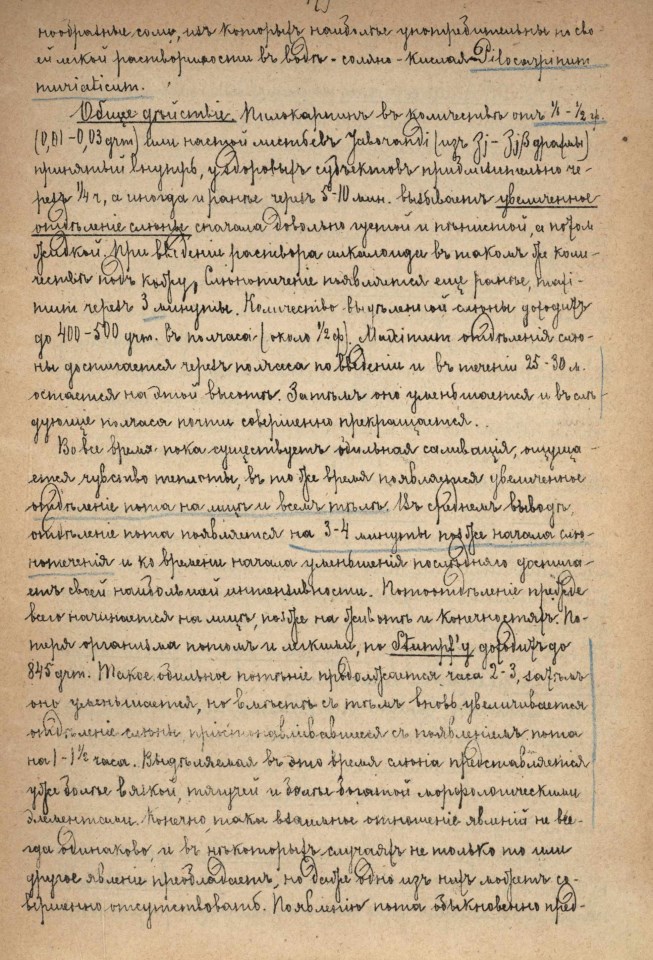 нообразные соли, изъ которыхъ наиболѣе употребительны по сво-
ей легкой растворимости въ водѣ - соляно - кислая Pilocarpinum
muriaticum.
Общее дѣйствіе. Пилокарпинъ въ количествѣ отъ ⅙ - ½ гр.
(0,01 - 0,03 grm) или настой листьевъ Jaborandi (изъ Zj - Zjβ драхмы)
принятый внутрь, у здоровыхъ субъектовъ приблизительно че-
резъ ¼ ч, а иногда и ранѣе через 5-10 мин. вызываетъ увеличенное
отдѣленіе слюны сначала довольно густой и пѣнистой, а потом
жидкой. При введеніи раствора алкалоида въ такомъ же коли-
чествѣ подъ кожу, слюнотеченіе появляется еще ранѣе, maxi-
mum черезъ 3 минуты. Количество выдѣленной слюны доходитъ
до 400 - 500 grm. въ полчаса (около ½ ф). Maximum отдѣленія слю-
ны достигается черезъ полчаса по введеніи и въ теченіи 25 - 30 м.
остается на этой высотѣ. Затѣмъ оно уменьшается и въ слѣ-
дующе полчаса почти совершенно прекращается.
Во все время пока существуетъ обильная саливація, ощуща-
ется чувство теплоты, въ то же время появляется увеличенное
отдѣленіе пота на лицѣ и всемъ тѣлѣ. Въ среднемъ выводѣ,
отдѣленіе пота появляется на 3-4 минуты позже начала слю-
нотеченія и ко времени начала уменьшенія послѣдняго достига-
етъ своей наибольшей интенсивности. Потоотдѣленіе прежде
всего начинается на лицѣ, позже на животѣ и конечностяхъ. По-
теря организма потомъ и легкими, по Stumpf'у доходитъ до
845 grm. Такое обильное потѣніе продолжается часа 2-3, затѣмъ
оно уменьшается, но вмѣстѣ съ тѣмъ вновь увеличивается
отдѣленіе слюны, пріостанавливавшееся съ появленіемъ пота
на 1 - 1½ часа. Выдѣляемая въ это время слюна представляется
уже болѣе вязкой, тягучей и болѣе богатой морфологическими
элементами. Конечно, такое взаимное отношеніе явленій не все-
гда одинаково, и въ нѣкоторыхъ случаяхъ не только то или
другое явленіе преобладаетъ, но даже одно изъ нихъ можетъ со-
вершенно отсутствовать. Появленію пота обыкновенно пред-